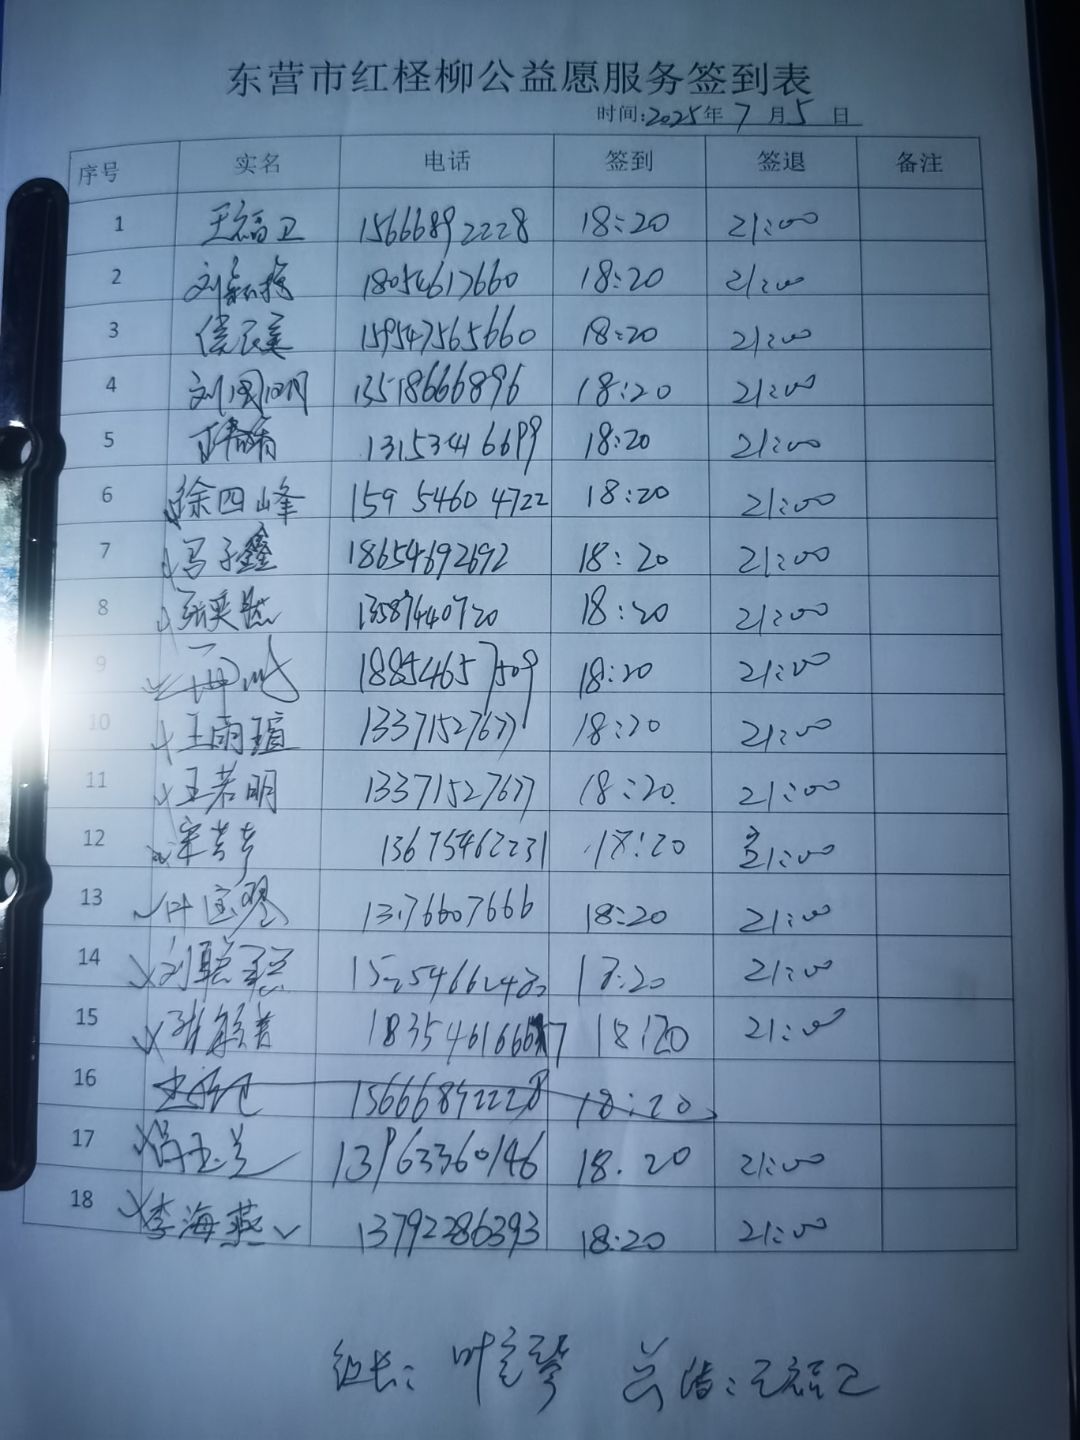 东营市红柽柳公益愿服务签到表
时间:2025年7月5日
序号 实名 电话 签到 签退 备注
1 王福卫 15666892228 18:20 21:00
2 刘 18054617660 18:20 21:00
3 侯 159547565660 18:20 21:00
4 刘国明 13518666896 18:20 21:00
5 13153416699 18:20 21:00
6 徐四峰 159 5460 4722 18:20 21:00
7 冯子鑫 18654692692 18:20 21:00
8 张奕 13587440720 18:20 21:00
9 18854657509 18:20 21:00
10 王雨瑄 13371527677 18:20 21:00
11 王若明 13371527677 18:20 21:00
12 13675462231 18:20 21:00
13 叶宝琴 13176607666 18:20 21:00
14 刘聪聪 18:20 21:00
15 张毓 18:20 21:00
16 15666892228 18:20
17 冯玉兰 13963360146 18.20 21:00
18 李海燕 13792286393 18:20 21:00
组长: 叶宝琴 王福卫